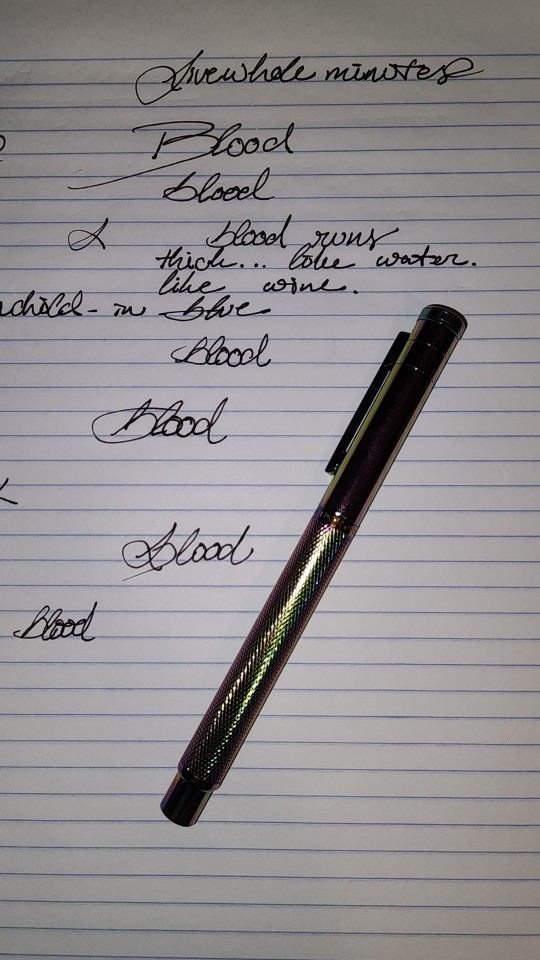 Five whole minutes
Blood
blood
blood runs
thick... like water.
like wine.
child - in blue
Blood
Blood
Blood
Blood